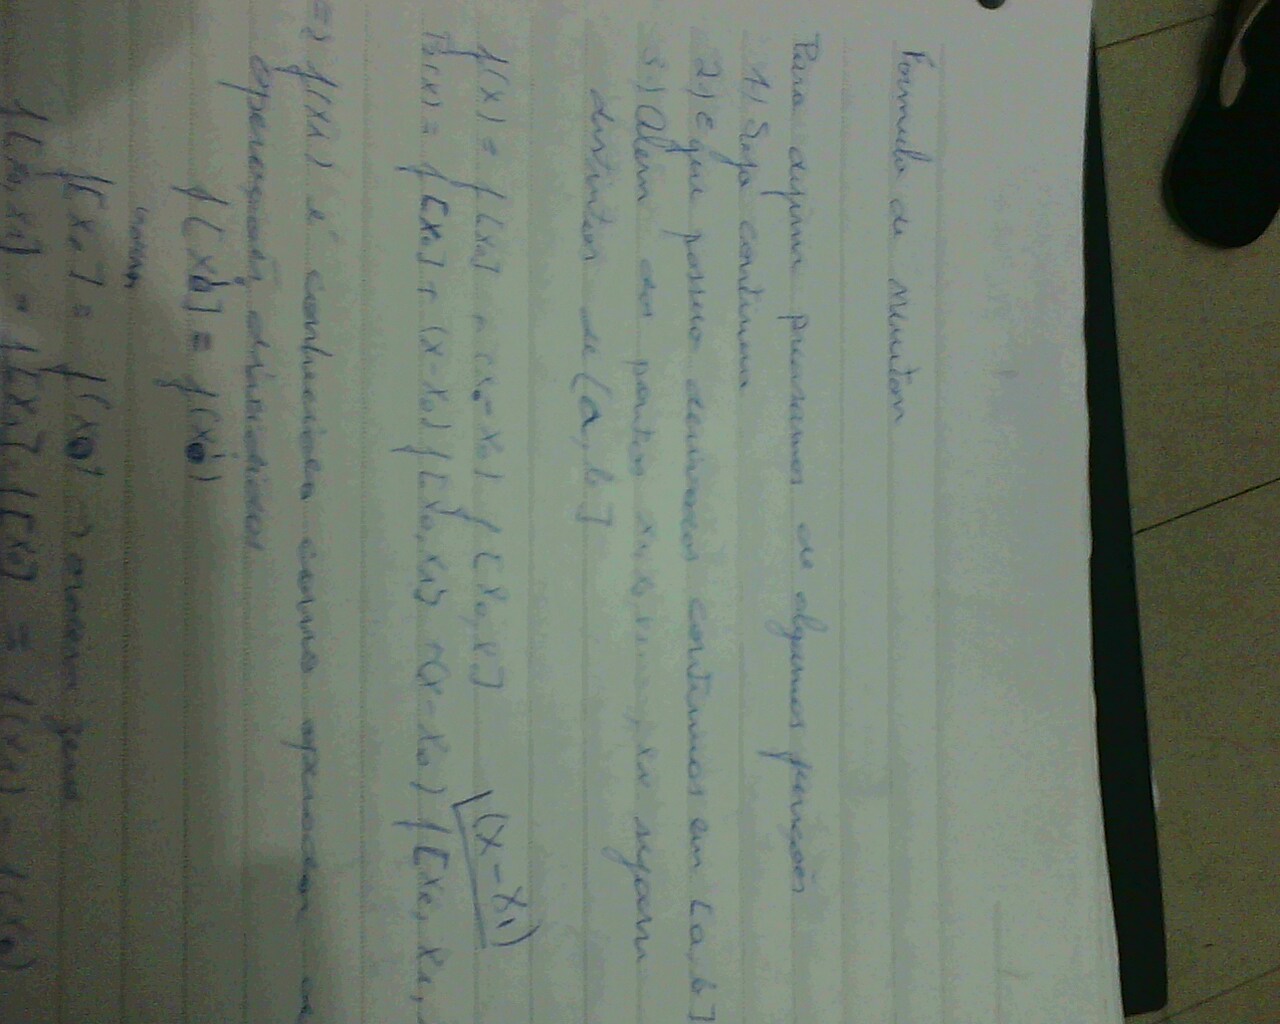 Formula de Newton
Para definir precisamos de algumas funções
1) Seja continua
2) e que possua derivadas continuas em [a, b]
3) Além dos pontos x0, x1, ..., xn sejam
distintos de [a, b]
f(x) = f[x0] + (x - x0) f[x0, x]
P2(x) = f[x0] + (x - x0) f[x0, x1] + (x - x0) f[x0, x1,
(x - x1)
=> f(x) é conhecida como operador de
diferenças divididas
f[x0] = f(x0)
f[x0] = f(x0) → ordem zero
f[x0, x1] = f[x1] - f[x0] = f(x1) - f(x0)